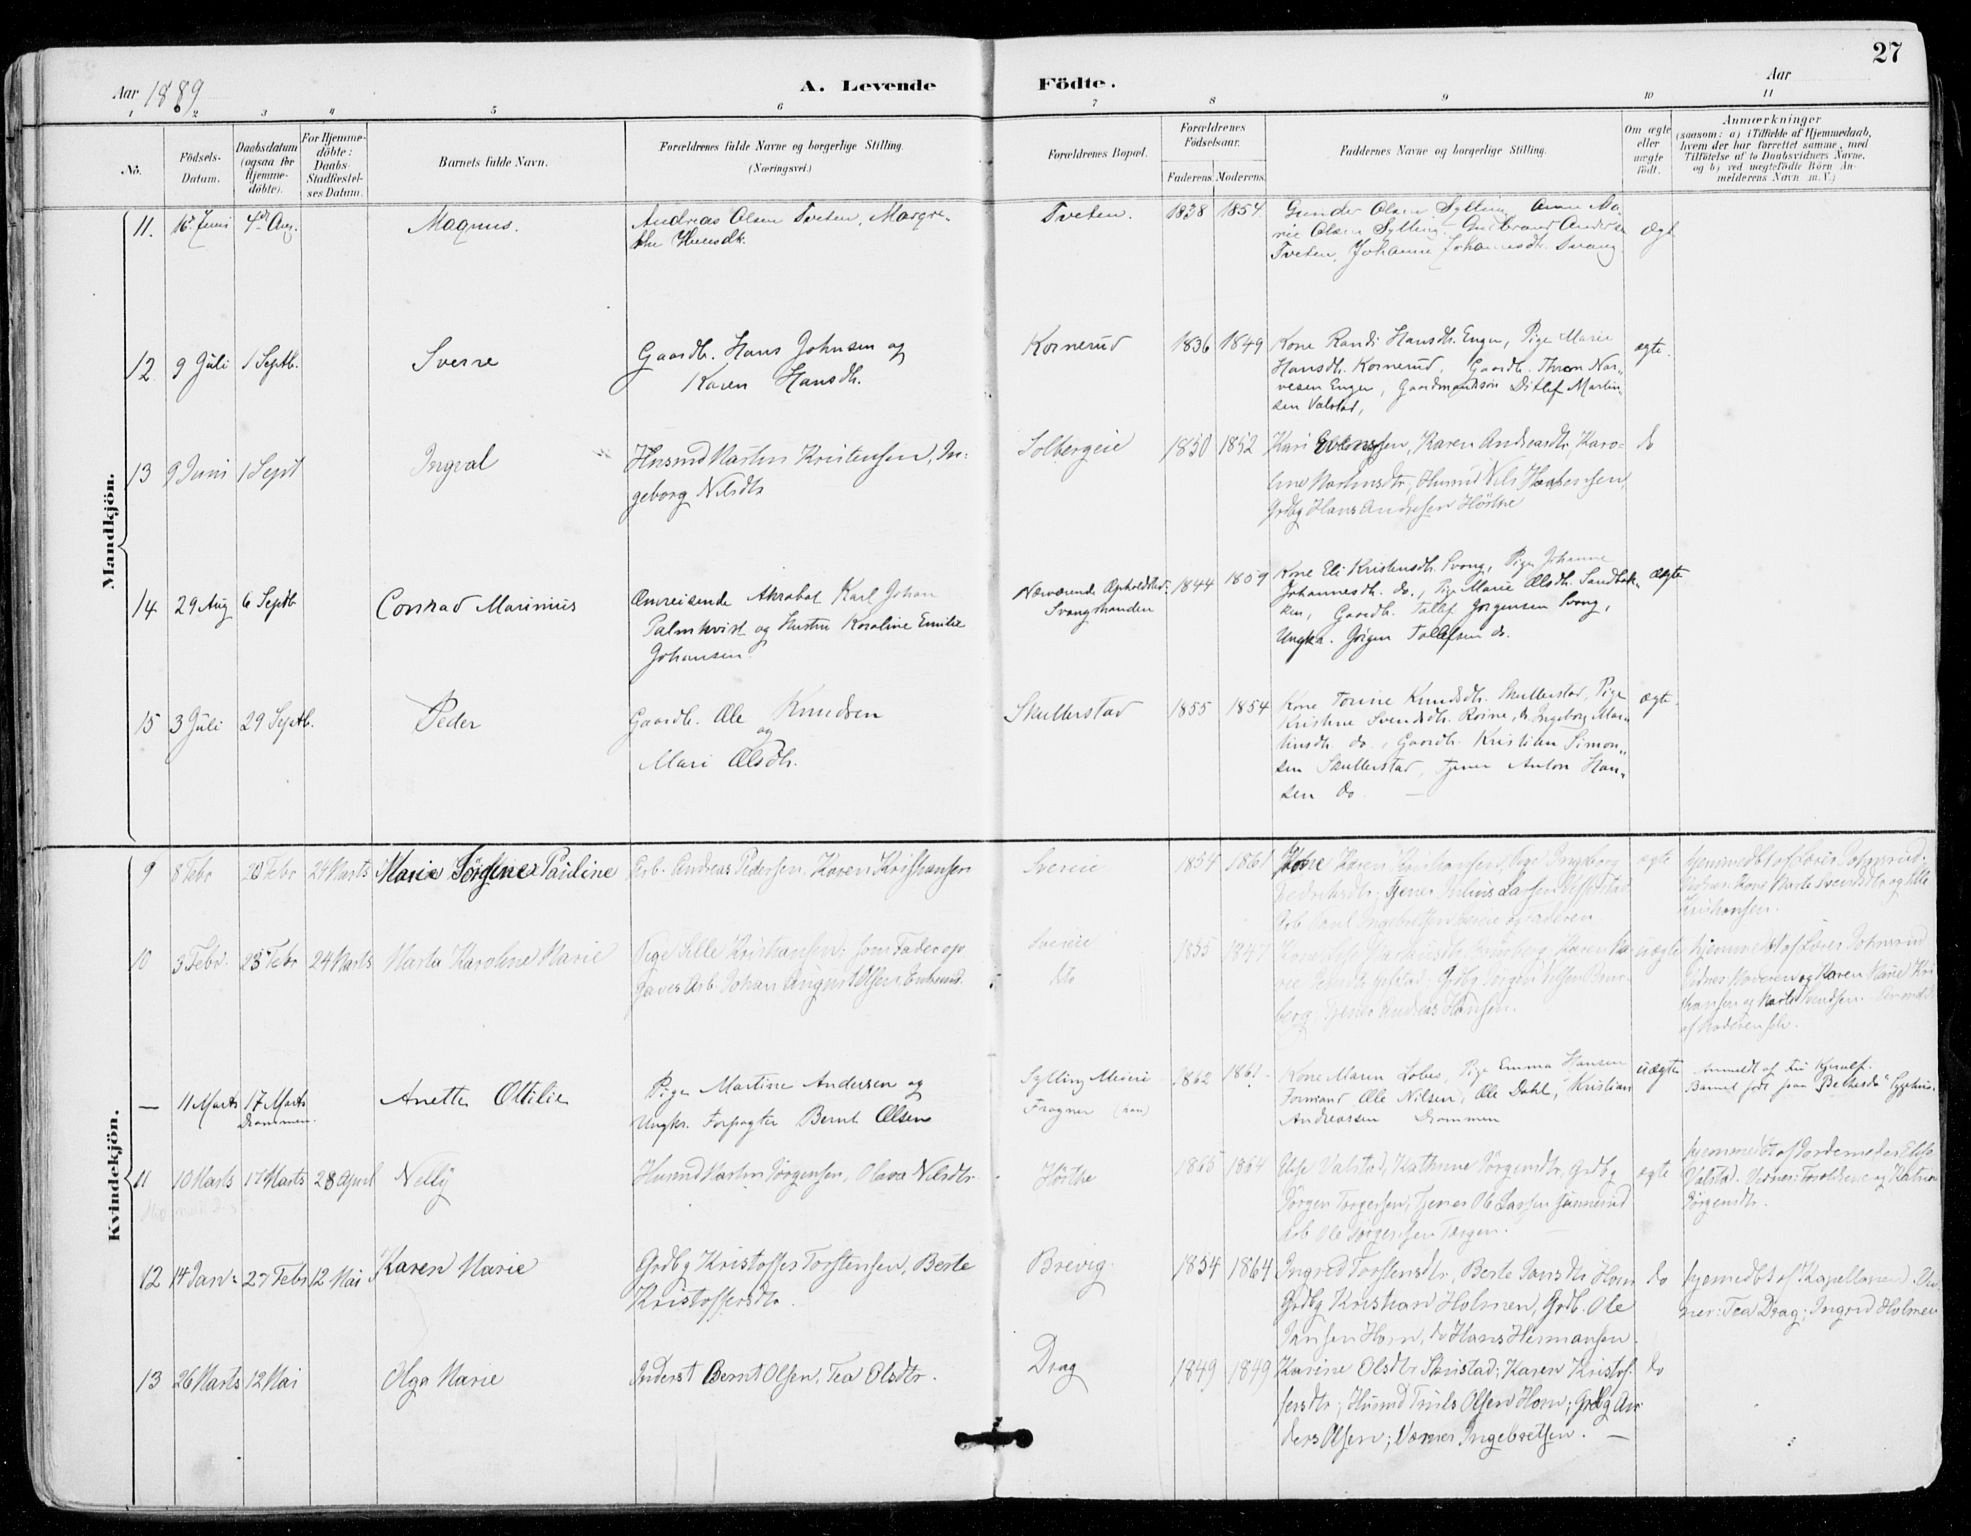 27
Aar 1889
A. Levende Födte.
Aar
1 2 3 4 5 6 7 8 9 10 11
No.
Födsels-Datum.
Daabsdatum (ogsaa for Hjemme-döbte).
For Hjemme-döbte: Daabs-Stadfæstel-ses Datum.
Barnets fulde Navn.
Forældrenes fulde Navne og borgerlige Stilling. (Næringsvei.)
Forældrenes Bopæl.
Forældrenes Födselsaar.
Faderens. Moderens.
Faddernes Navne og borgerlige Stilling.
Om ægte eller uægte födt.
Anmærkninger (saasom: a) i Tilfælde af Hjemmedaab, hvem der har forrettet samme, med Tilföielse af to Daabsvidners Navne, og b) ved uægtefödte Börn An-melderens Navn m. V.)
Mandkjön.
11. 16de Juni 4de Aug. Magnus. Andreas Olsen Tveten, Margre-
the Hansdtr. Tveten. 1838 1854. Gunder Olsen Sylling, Anne Ma-
rie Olsen Sylling, Gulbrand Anders
Tveten, Johanne Johannesdtr. Svang. Ægt
12. 9 Juli 1 Septb. Sverre Gaardb. Hans Johnsen og
Karen Hansdtr. Kornerud 1836 1849 Kone Randi Hansdtr. Enger, Pige Marie
Hansdtr. Kornerud, Gaardb. Thron Nar-
vesen Enger, Gaardmandssøn Ditlef Martin-
sen Valstad, ægte.
13 9 Juni 1 Sept Ingval Husmd Martin Kristensen, In-
geborg Nilsdtr Solbergeie 1850 1852 Kari Evensen, Karen Andreasdtr, Karo-
line Martinsdtr, Husmd Nils
Grdbg Hans Andresen Hörthe do
14 29 Aug 6 Septb Conrad Marinius Omreisende Akrobat Karl Johan
Palmkvist og Hustru Karoline Emilie
Johansen. Nærværende Opholdssted:
Svangstranden 1844 1859 Kone Eli Kristensdtr. Svang, Pige Johanne
Johannesdtr. do., Pige Marie Olsdtr. Sandbak-
ken, Gaardb. Tollef Jørgensen Svang,
Ungka. Jörgen Tollefsen do. ægte
15 3 Juli 29 Septb. Peder Gaardb. Ole Knudsen
og
Mari Olsdtr. Skullerstad 1855 1854 Kone Torine Knudsdtr. Skullerstad, Pige
Kristine Svendsdtr. Roine, do Ingeborg Mar-
tinsdtr. do., Gaardb. Kristian Simon-
sen Skullerstad, Tjener Anton Han-
sen do. ægte.
Kvindekjön.
9 8 Febr 20 Febr 24 Marts Marie Jörgine Pauline Arb. Andreas Pedersen, Karen Kristiansen Svereie 1854 1861 Kone Karen Kristiansen, Pige Ingeborg
Tjener Julius Larsen
Arb. Paul Ingebretsen Svereie og Faderen ægte hjemmedbt af Lærer Johnsrud.
Vidner: Kone Marte Svendsdtr og Sille
Kristiansen.
10 3 Febr. 23 Febr 24 Marts Marta Karoline Marie Pige Sille Kristiansen; som Fader op-
gaves Arb. Johan August Olsen, Enkemd. Svereie
dto 1855 1847 Karen Ma-
rie
berg, Tjener Andreas Hansen. uægte hjemmedbt af Lærer Johnsrud
Vidner Moderen og Karen Marie Kri-
stiansen og Marte Svendsen. Anmeldt
af Moderen selv.
— 11 Marts 17 Marts
Drammen. Anette Ottilie Pige Martine Andersen og
Ungkr. Forpagter Bernt Olsen Sylling Meieri
Fragner (han) 1862 1861. Kone Maren Lobes, Pige Emma Hansen
Formand Ole Nilsen, Ole Dahl, Kristian
Andreassen Drammen uægte Anmeldt af
Barnet födt paa "Bethesda"
11 10 Marts 17 Marts 28 April Nelly Husmd Martin Jörgensen, Olava Nilsdtr. Hörthe 1865 1864 Else Valstad, Kathrine Jörgensdtr, Grdbg
Jörgen Torgersen, Tjener Ole Larsen
Arb. Ole Jörgensen ægte hjemmedbt af Jordemoder Else
Valstad. Vidner: Forældrene og Katrine
Jörgensdtr.
12 14 Jan. 27 Febr 12 Mai Karen Marie Grdbg Kristoffer Torstensen, Berte
Kristoffersdtr. Brevig. 1854 1864 Ingred Torstensdtr, Berte Jansdtr Horn
Grdbg Kristian Holmen, Grdb. Ole
Jansen Horn, do Hans Hermansen. do hjemmedbt af Kapellanen. Vid-
ner: Tea Drag; Ingrid Holmen
13 26 Marts 12 Mai Olga Marie Inderst Bernt Olsen, Tea Olsdtr. Drag 1849 1849 Karine Olsdtr Skristad; Karen Kristof-
fersdtr; Husmd Truls Olsen Horn; Grdbg An-
ders Olsen; Verner Ingebretsen. — do